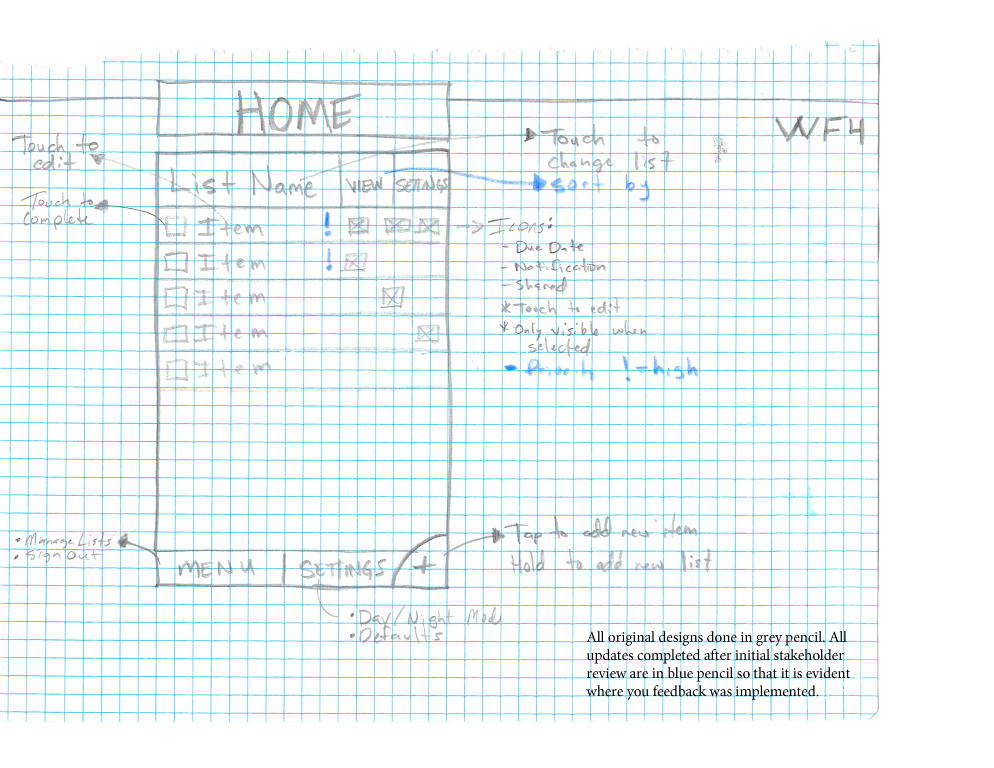 HOME
WF4
Touch to
edit
Touch to
change list
sort by
List Name VIEW SETTINGS
Touch to
Complete
Item !
Item !
Item
Item
Item
Icons:
- Due Date
- Notification
- Shared
* Touch to edit
* Only visible when
selected
- Priority ! = high
• Manage Lists
• Sign Out
MENU SETTINGS +
Tap to add new item
Hold to add new list
• Day/Night Mode
• Defaults
All original designs done in grey pencil. All
updates completed after initial stakeholder
review are in blue pencil so that it is evident
where you feedback was implemented.